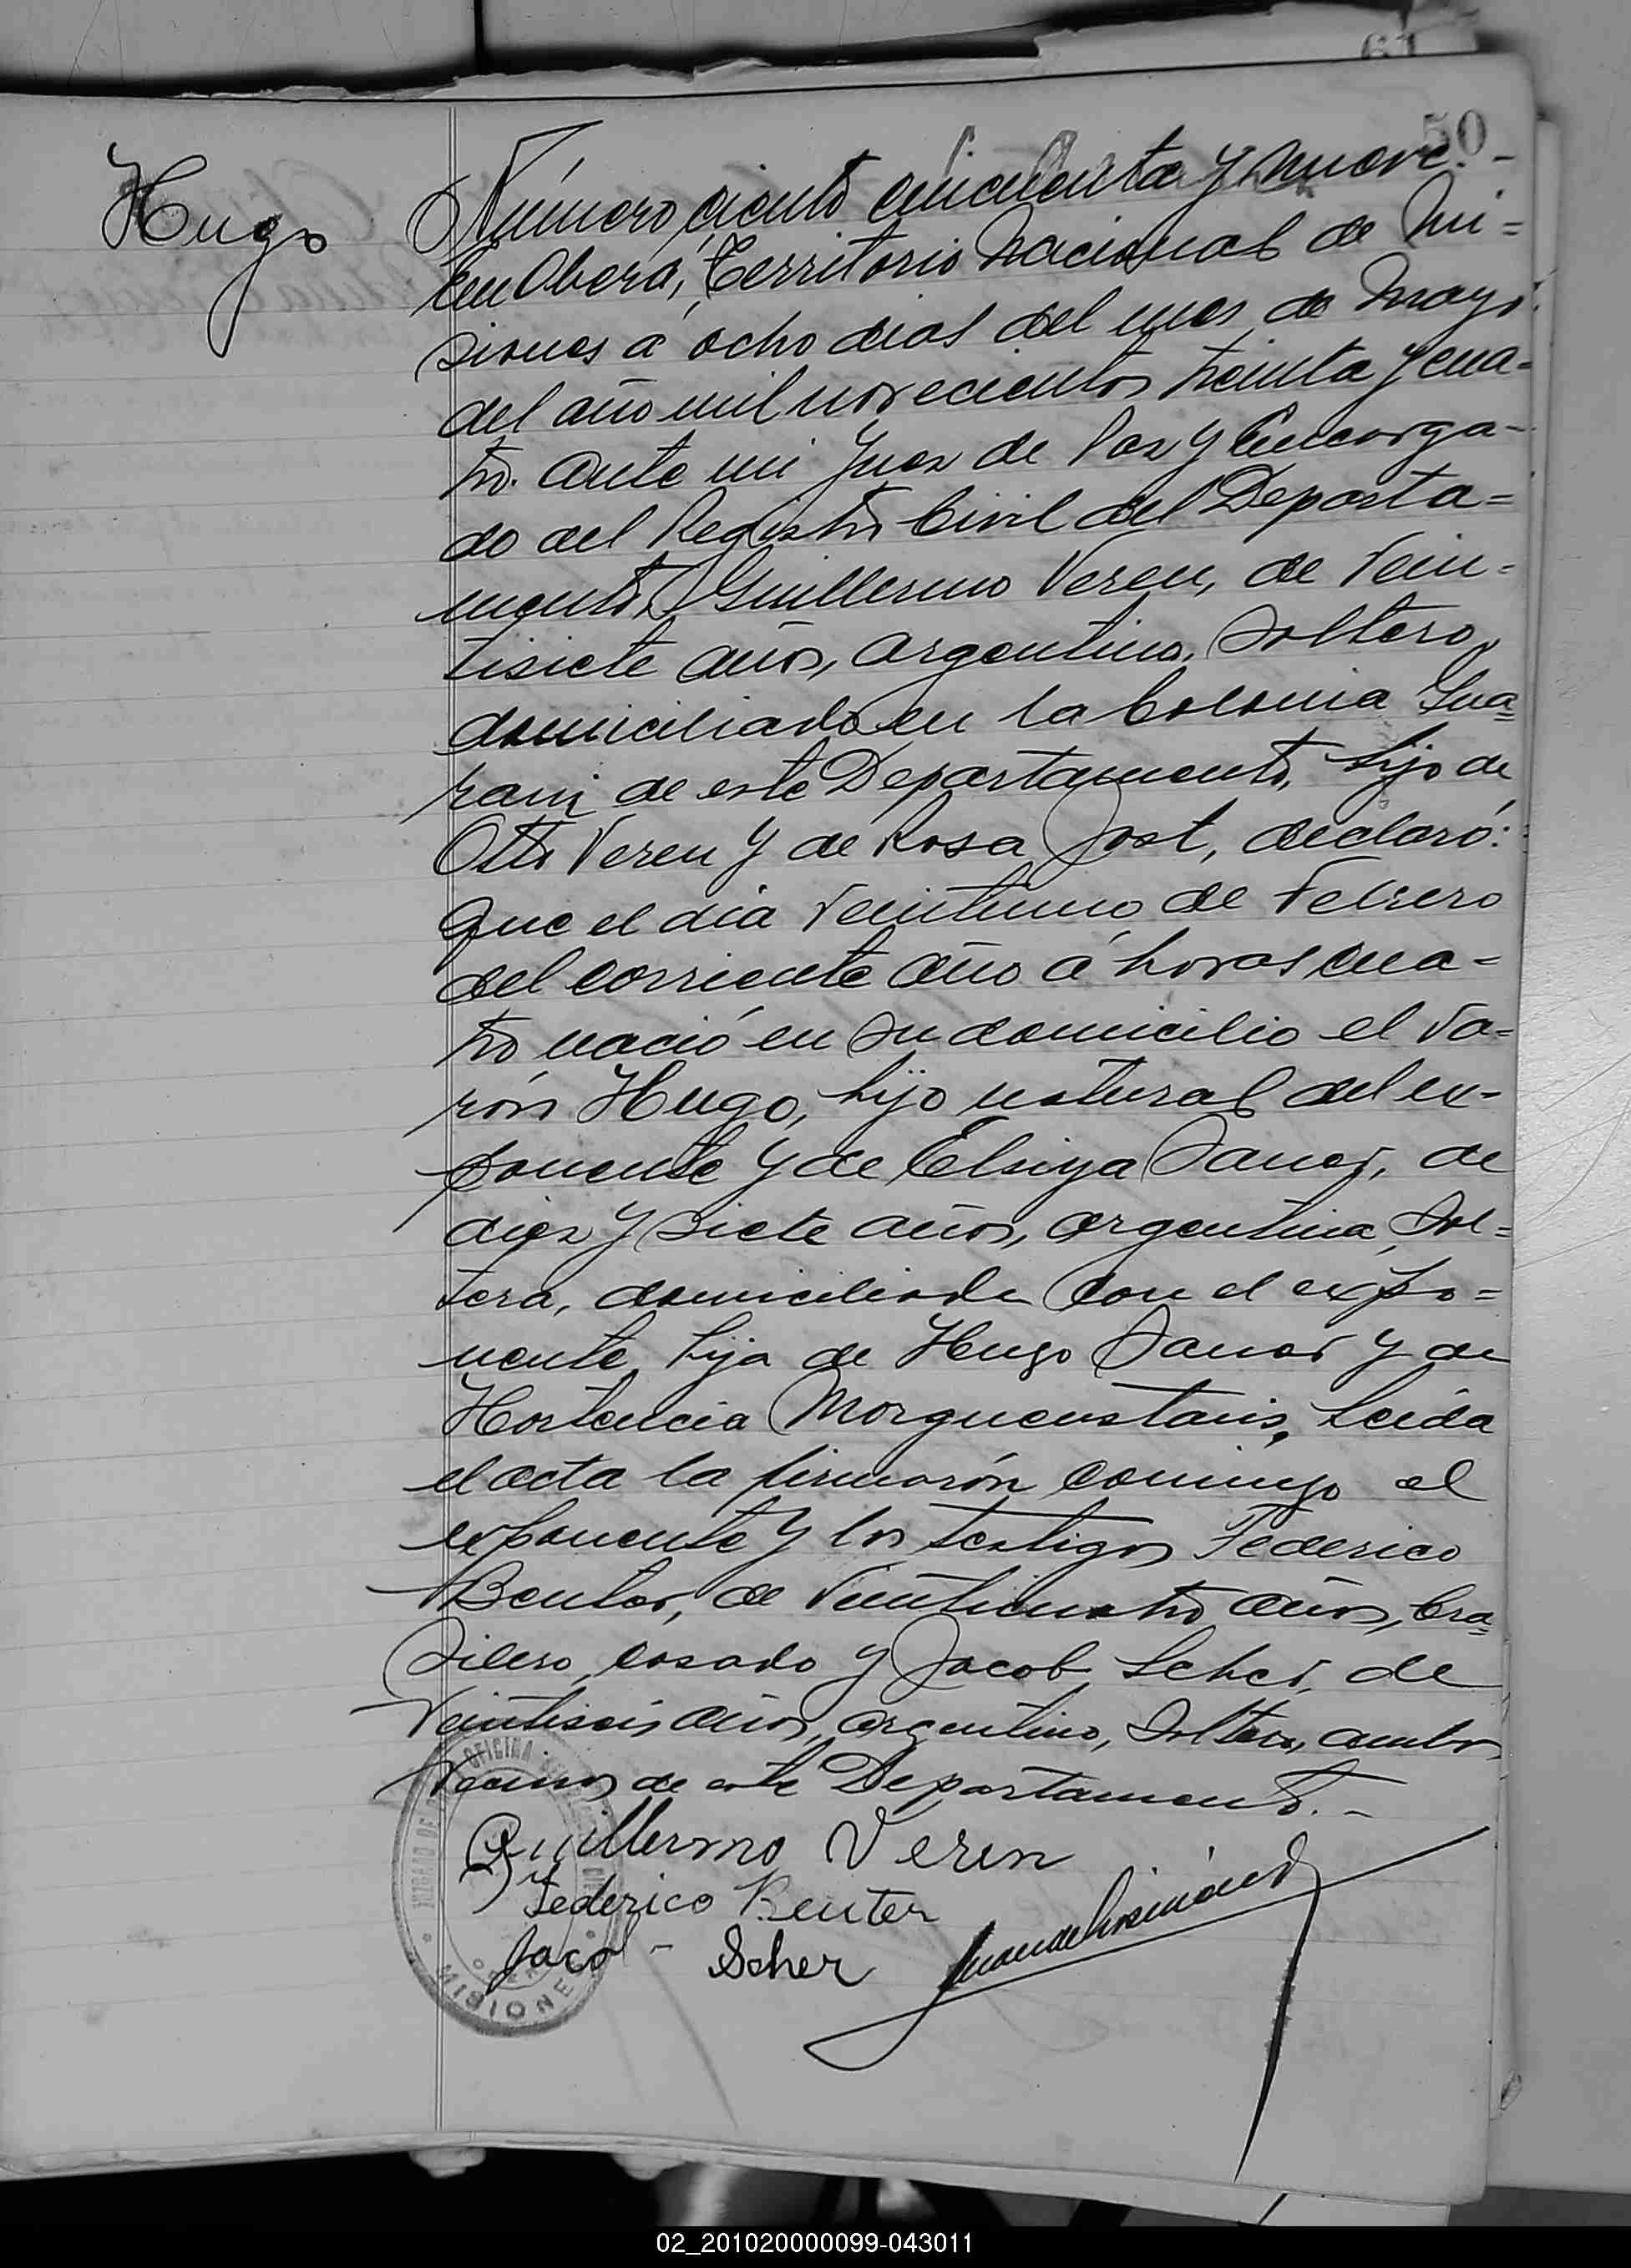 50
Hugo
Número ciento cincuenta y nueve.-
En Oberá, Territorio Nacional de Mi=
siones á ocho dias del mes de Mayo
del año mil novecientos treinta y cua-
tro. ante mi Juez de Paz y Encarga-
do del Registro Civil del Departa=
mento, Guillermo Veren, de vein-
tisiete años, argentino, soltero,
domiciliado en la Colonia Gua=
rani de este Departamento, hijo de
Otto Veren y de Rosa Jost, declaró:
Que el dia veintiuno de Febrero
del corriente año á horas cua-
tro nació en su domicilio el va=
rón Hugo, hijo natural del ex-
ponente y de Elsiya Saner, de
diez y siete años, argentina, sol=
tera, domiciliada con el expo=
nente, hija de Hugo Saner y de
Hortencia Morguenstans, Leida
el acta la firmarón conmigo el
exponente y los testigos Federico
Benter, de veinticuatro años, bra=
silero, casado y Jacob Scher, de
veintiseis años, argentino, soltero, ambos
vecinos de este Departamento.-
Guillermo Veren
Federico Benter
Jacob - Scher
OFICINA
JUZGADO DE
MISIONES
02_201020000099-043011